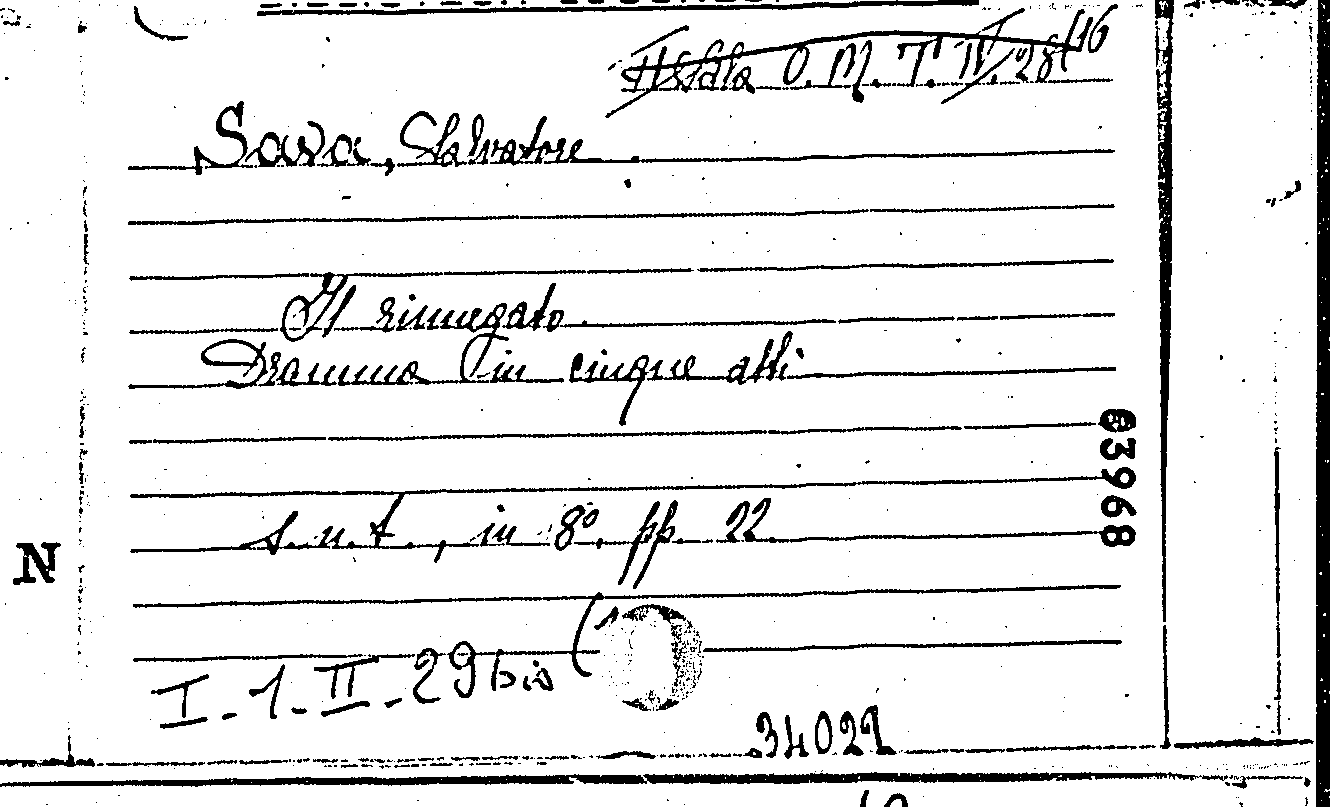 II Sala O. M. T. IV. 28 (16
Sava, Salvatore.
Il rinnegato.
Dramma in cinque atti
03968
s. n. t., in 8°. pp. 22.
N
I-1-II-29 bis (1
34021